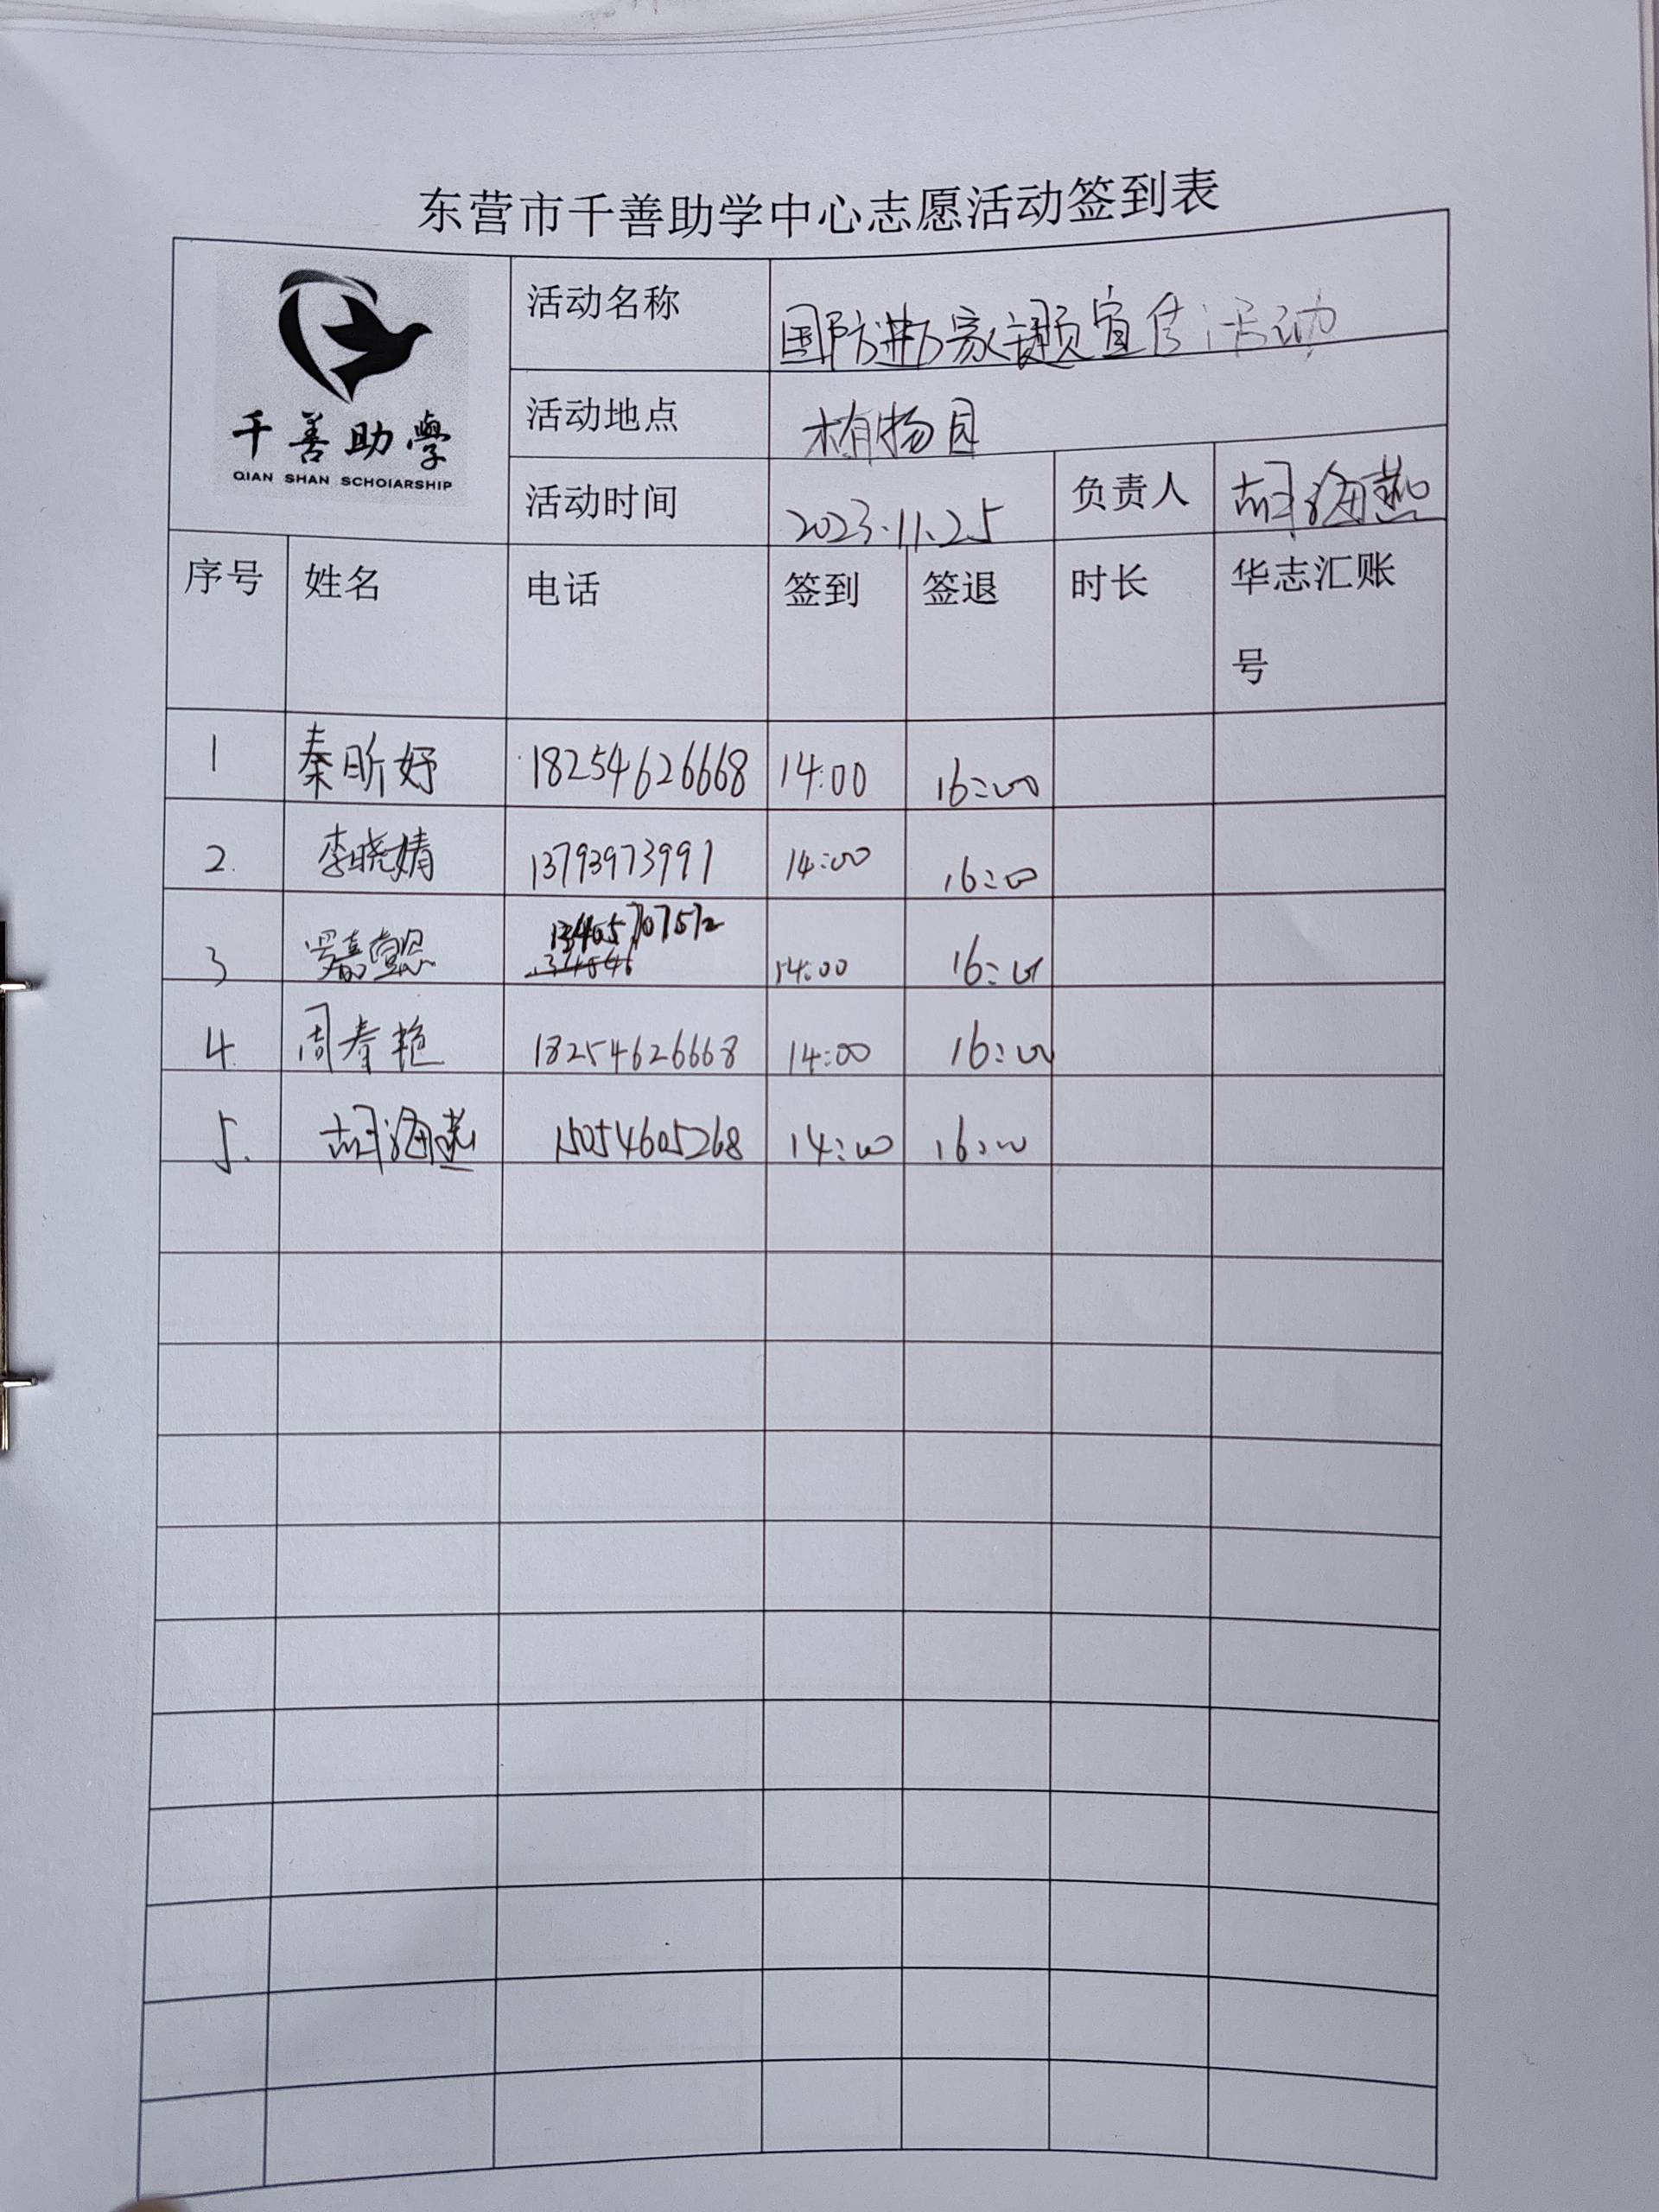 东营市千善助学中心志愿活动签到表
千善助學
QIAN SHAN SCHOIARSHIP
活动名称 国防进万家主题宣传活动
活动地点 植物园
活动时间 2023.11.25 负责人 胡海燕
序号 姓名 电话 签到 签退 时长 华志汇账
号
1 秦昕妤 18254626668 14:00 16:00
2. 李晓婧 13793973991 14:00 16:00
3 13405707572 14:00 16:00
4. 周春艳 18254626668 14:00 16:00
5. 胡海燕 15054605268 14:00 16:00